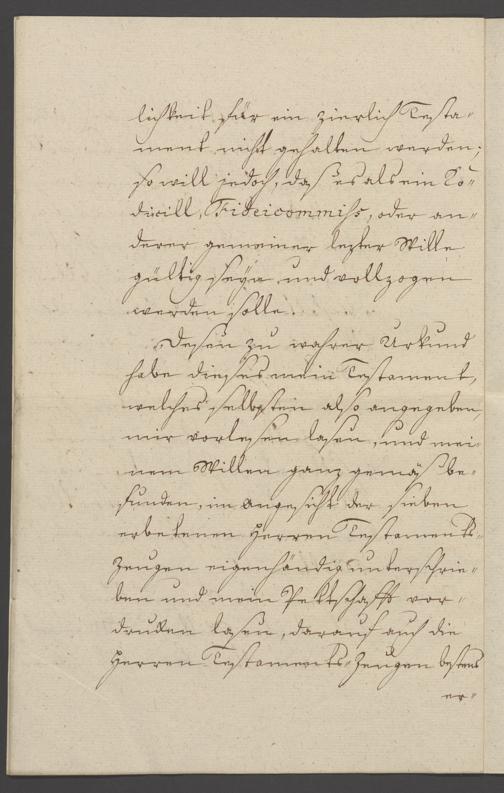 lichkeit für ein zierlich Testa-
ment nicht gehalten werden;
so will jedoch, daß es als ein Co-
dicill, Fideicommiss, oder an-
derer gemeiner lezter Wille
gültig seyn und vollzogen
werden solle.
Deßen zu wahrer Urkund
habe dieses mein Testament,
welches selbsten also angegeben,
mir vorlesen laßen, und mei-
nem Willen ganz gemäß be-
funden, im angesicht der sieben
erbetenen Herren Testaments-
Zeugen eigenhändig unterschrie-
ben und mein Pettschafft vor-
drucken laßen, darauf auch die
Herren Testaments-Zeugen bestens
er-